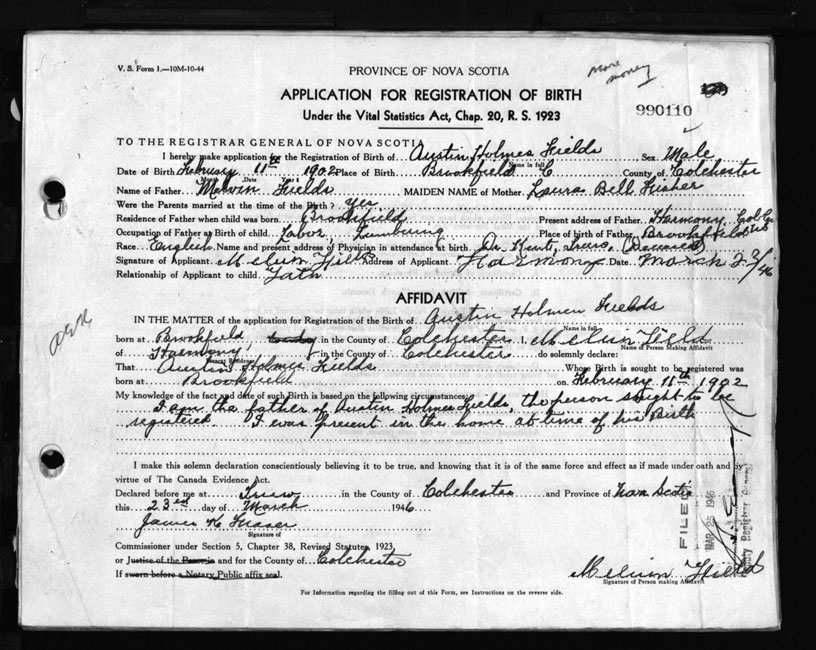 V. S. Form 1.—10M-10-44
more money
PROVINCE OF NOVA SCOTIA
APPLICATION FOR REGISTRATION OF BIRTH
990110
Under the Vital Statistics Act, Chap. 20, R. S. 1923
TO THE REGISTRAR GENERAL OF NOVA SCOTIA
I hereby make application for the Registration of Birth of Austin Holmes Fields Sex Male
Name in full
Date of Birth February 11th 1902 Place of Birth Brookfield County of Colchester
Month Date Year
Name of Father Melvin Fields MAIDEN NAME of Mother Laura Bell Fisher
Were the Parents married at the time of the Birth? Yes
Residence of Father when child was born Brookfield Present address of Father Harmony, Col Co
Occupation of Father at Birth of child Labor, Lumbering Place of birth of Father Brookfield
Race English Name and present address of Physician in attendance at birth Dr. Kent, Truro, (Deceased)
Signature of Applicant Melvin Fields Address of Applicant Harmony Date March 23/46
Relationship of Applicant to child Fath
AFFIDAVIT
IN THE MATTER of the application for Registration of the Birth of Austin Holmes Fields
Name in full
born at Brookfield, in the County of Colchester I, Melvin Field
Name of Person Making Affidavit
of Harmony, in the County of Colchester do solemnly declare:
Present Residence
That Austin Holmes Fields Whose Birth is sought to be registered was
born at Brookfield on February 11th 1902
My knowledge of the fact and date of such Birth is based on the following circumstances:
I am the father of Austin Holmes Fields, the person sought to be
registered. I was present in the home at time of his Birth
I make this solemn declaration conscientiously believing it to be true, and knowing that it is of the same force and effect as if made under oath and by
virtue of The Canada Evidence Act.
Declared before me at Truro in the County of Colchester and Province of Nova Scotia
this 23rd day of March 1946
James K Fraser
Signature of
Commissioner under Section 5, Chapter 38, Revised Statutes, 1923,
or Justice of the Peace in and for the County of Colchester
If sworn before a Notary Public affix seal.
Melvin Field
Signature of Person making Affidavit
FILED
MAR 25 1946
Deputy Registrar General
For Information regarding the filling out of this Form, see Instructions on the reverse side.